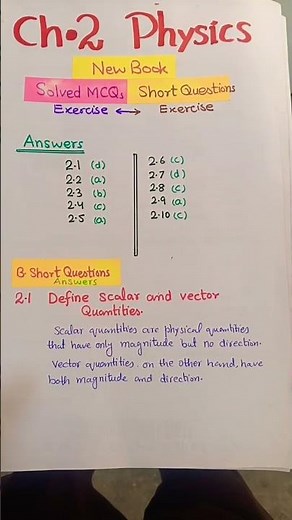 Ch.2 Physics
New Book
Solved MCQs Short Questions
Exercise ↔ Exercise
Answers
2.1 (d)
2.2 (a)
2.3 (b)
2.4 (c)
2.5 (a)
2.6 (c)
2.7 (d)
2.8 (c)
2.9 (a)
2.10 (c)
Short Questions
Answers
2.1 Define scalar and vector
Quantities.
Scalar quantities are physical quantities
that have only magnitude but no direction.
Vector quantities, on the other hand, have
both magnitude and direction.